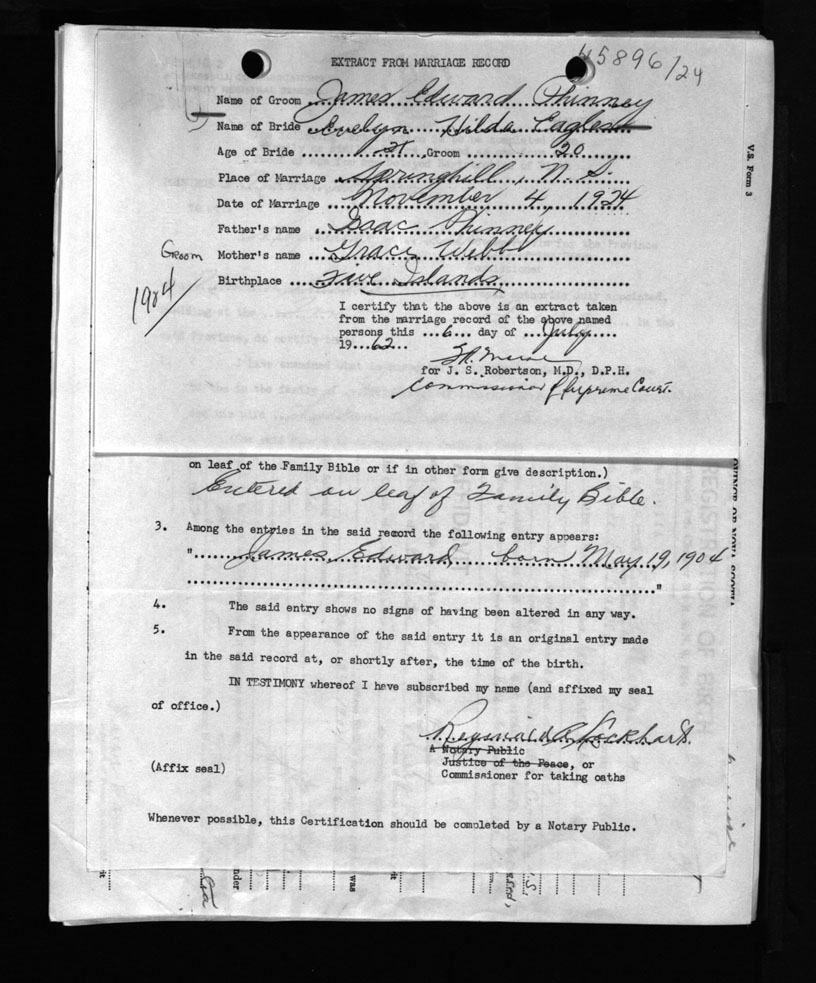 EXTRACT FROM MARRIAGE RECORD
45896/24
Name of Groom James Edward Phinney
Name of Bride Evelyn Hilda Eagles
Age of Bride 21, Groom 20
Place of Marriage Springhill, N.S.
Date of Marriage November 4, 1924
Father's name Isaac Phinney
Groom Mother's name Grace Webb
Birthplace Five Islands
1924
I certify that the above is an extract taken
from the marriage record of the above named
persons this ...6... day of July
19...62...
for J. S. Robertson, M.D., D.P.H.
Commissioner of Supreme Court.
V.S. Form 3
on leaf of the Family Bible or if in other form give description.)
Entered on leaf of Family Bible.
3. Among the entries in the said record the following entry appears:
"James Edward born May 19, 1904
"
4. The said entry shows no signs of having been altered in any way.
5. From the appearance of the said entry it is an original entry made
in the said record at, or shortly after, the time of the birth.
IN TESTIMONY whereof I have subscribed my name (and affixed my seal
of office.)
Reginald R. Lockhart.
A Notary Public
Justice of the Peace, or
(Affix seal) Commissioner for taking oaths
Whenever possible, this Certification should be completed by a Notary Public.
REGISTRATION OF BIRTH
was